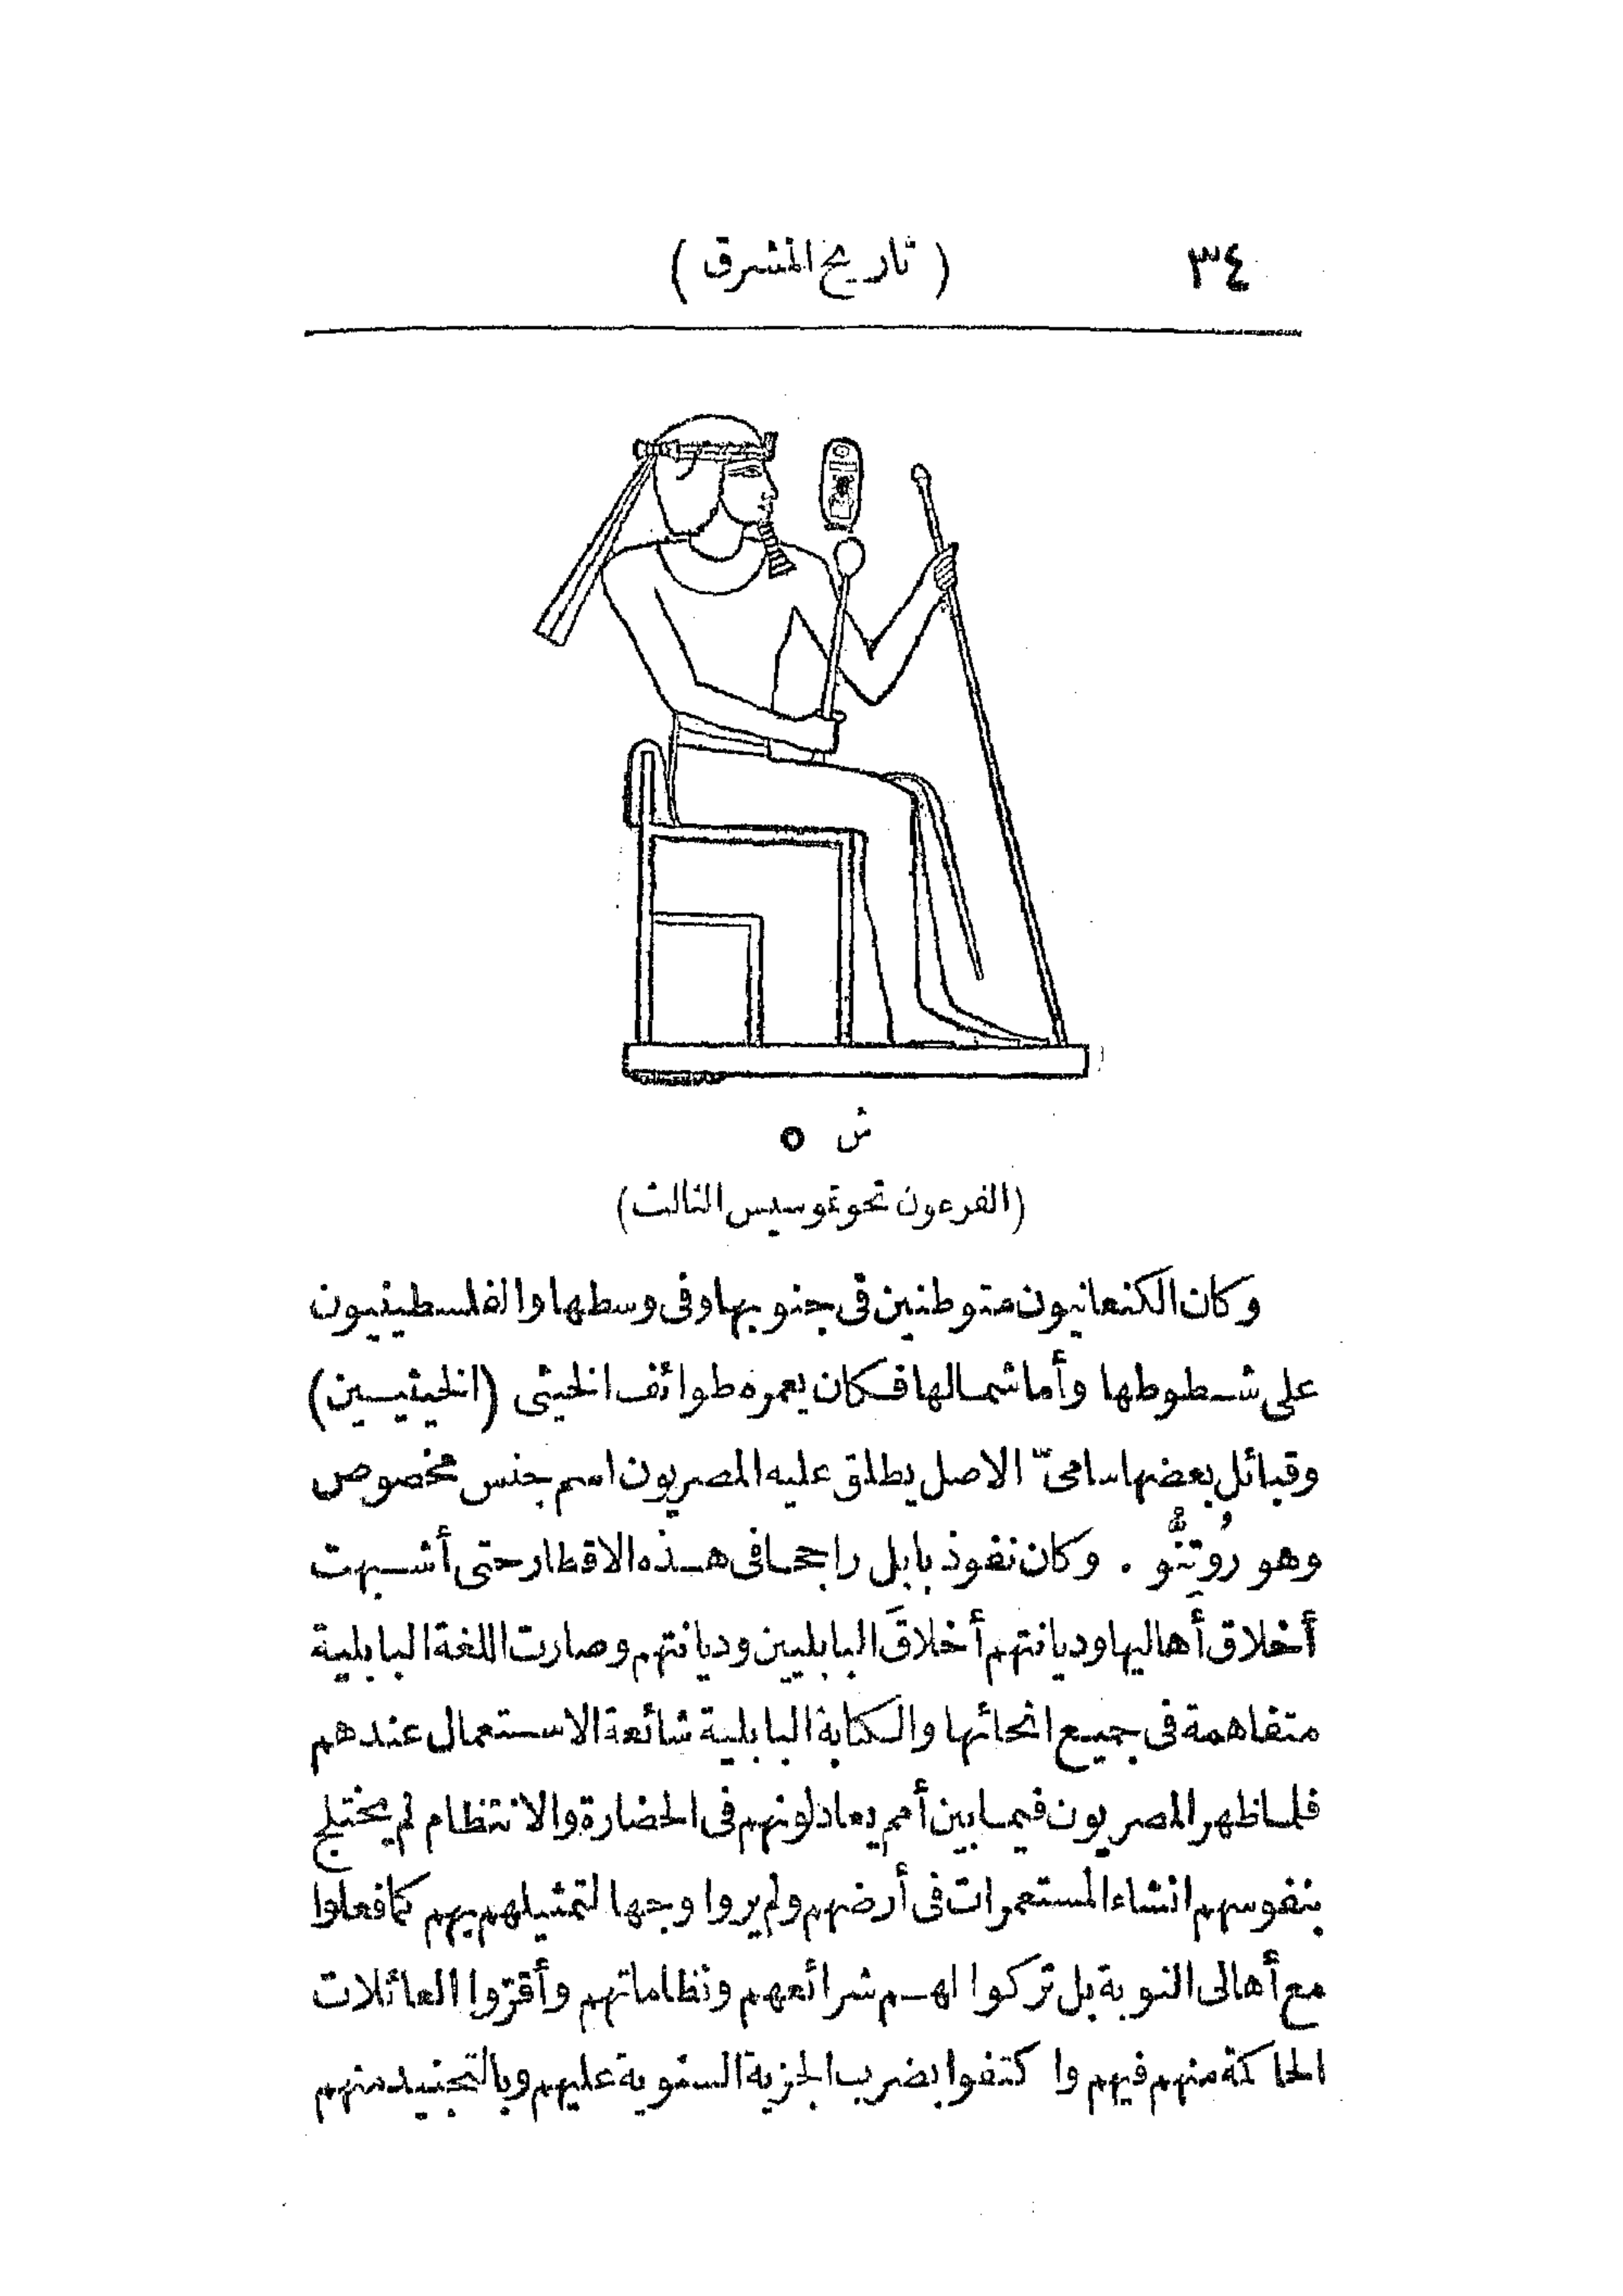 ٣٤ (تاريخ المشرق)
ش ٥
(الفرعون تحوتموسيس الثالث)
وكان الكنعانيون متوطنين في جنوبها وفي وسطها والفلسطينيون
على شطوطها وأما شمالها فكان يعمره طوائف الخيثى (الخيثيسين)
وقبائل بعضها سامىّ الاصل يطلق عليه المصريون اسم جنس مخصوص
وهو رُوتِنُّو . وكان نفوذ بابل راجحا فى هذه الاقطار حتى أشبهت
أخلاق أهاليها وديانتهم أخلاقَ البابليين وديانتهم وصارت اللغة البابلية
متفاهمة فى جميع انحائها والكتابة البابلية شائعة الاستعمال عندهم
فلما ظهر المصريون فيما بين أمم يعادلونهم فى الحضارة والانتظام لم يختلج
بنفوسهم انشاء المستعمرات فى أرضهم ولم يروا وجها لتمثيلهم بهم كما فعلوا
مع أهالى النوبة بل تركوا لهم شرائعهم ونظاماتهم وأقرّوا العائلات
الحاكمة منهم فيهم واكتفوا بضرب الجزية السنوية عليهم وبالتجنيد منهم